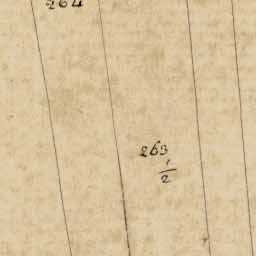 264
263
1/2